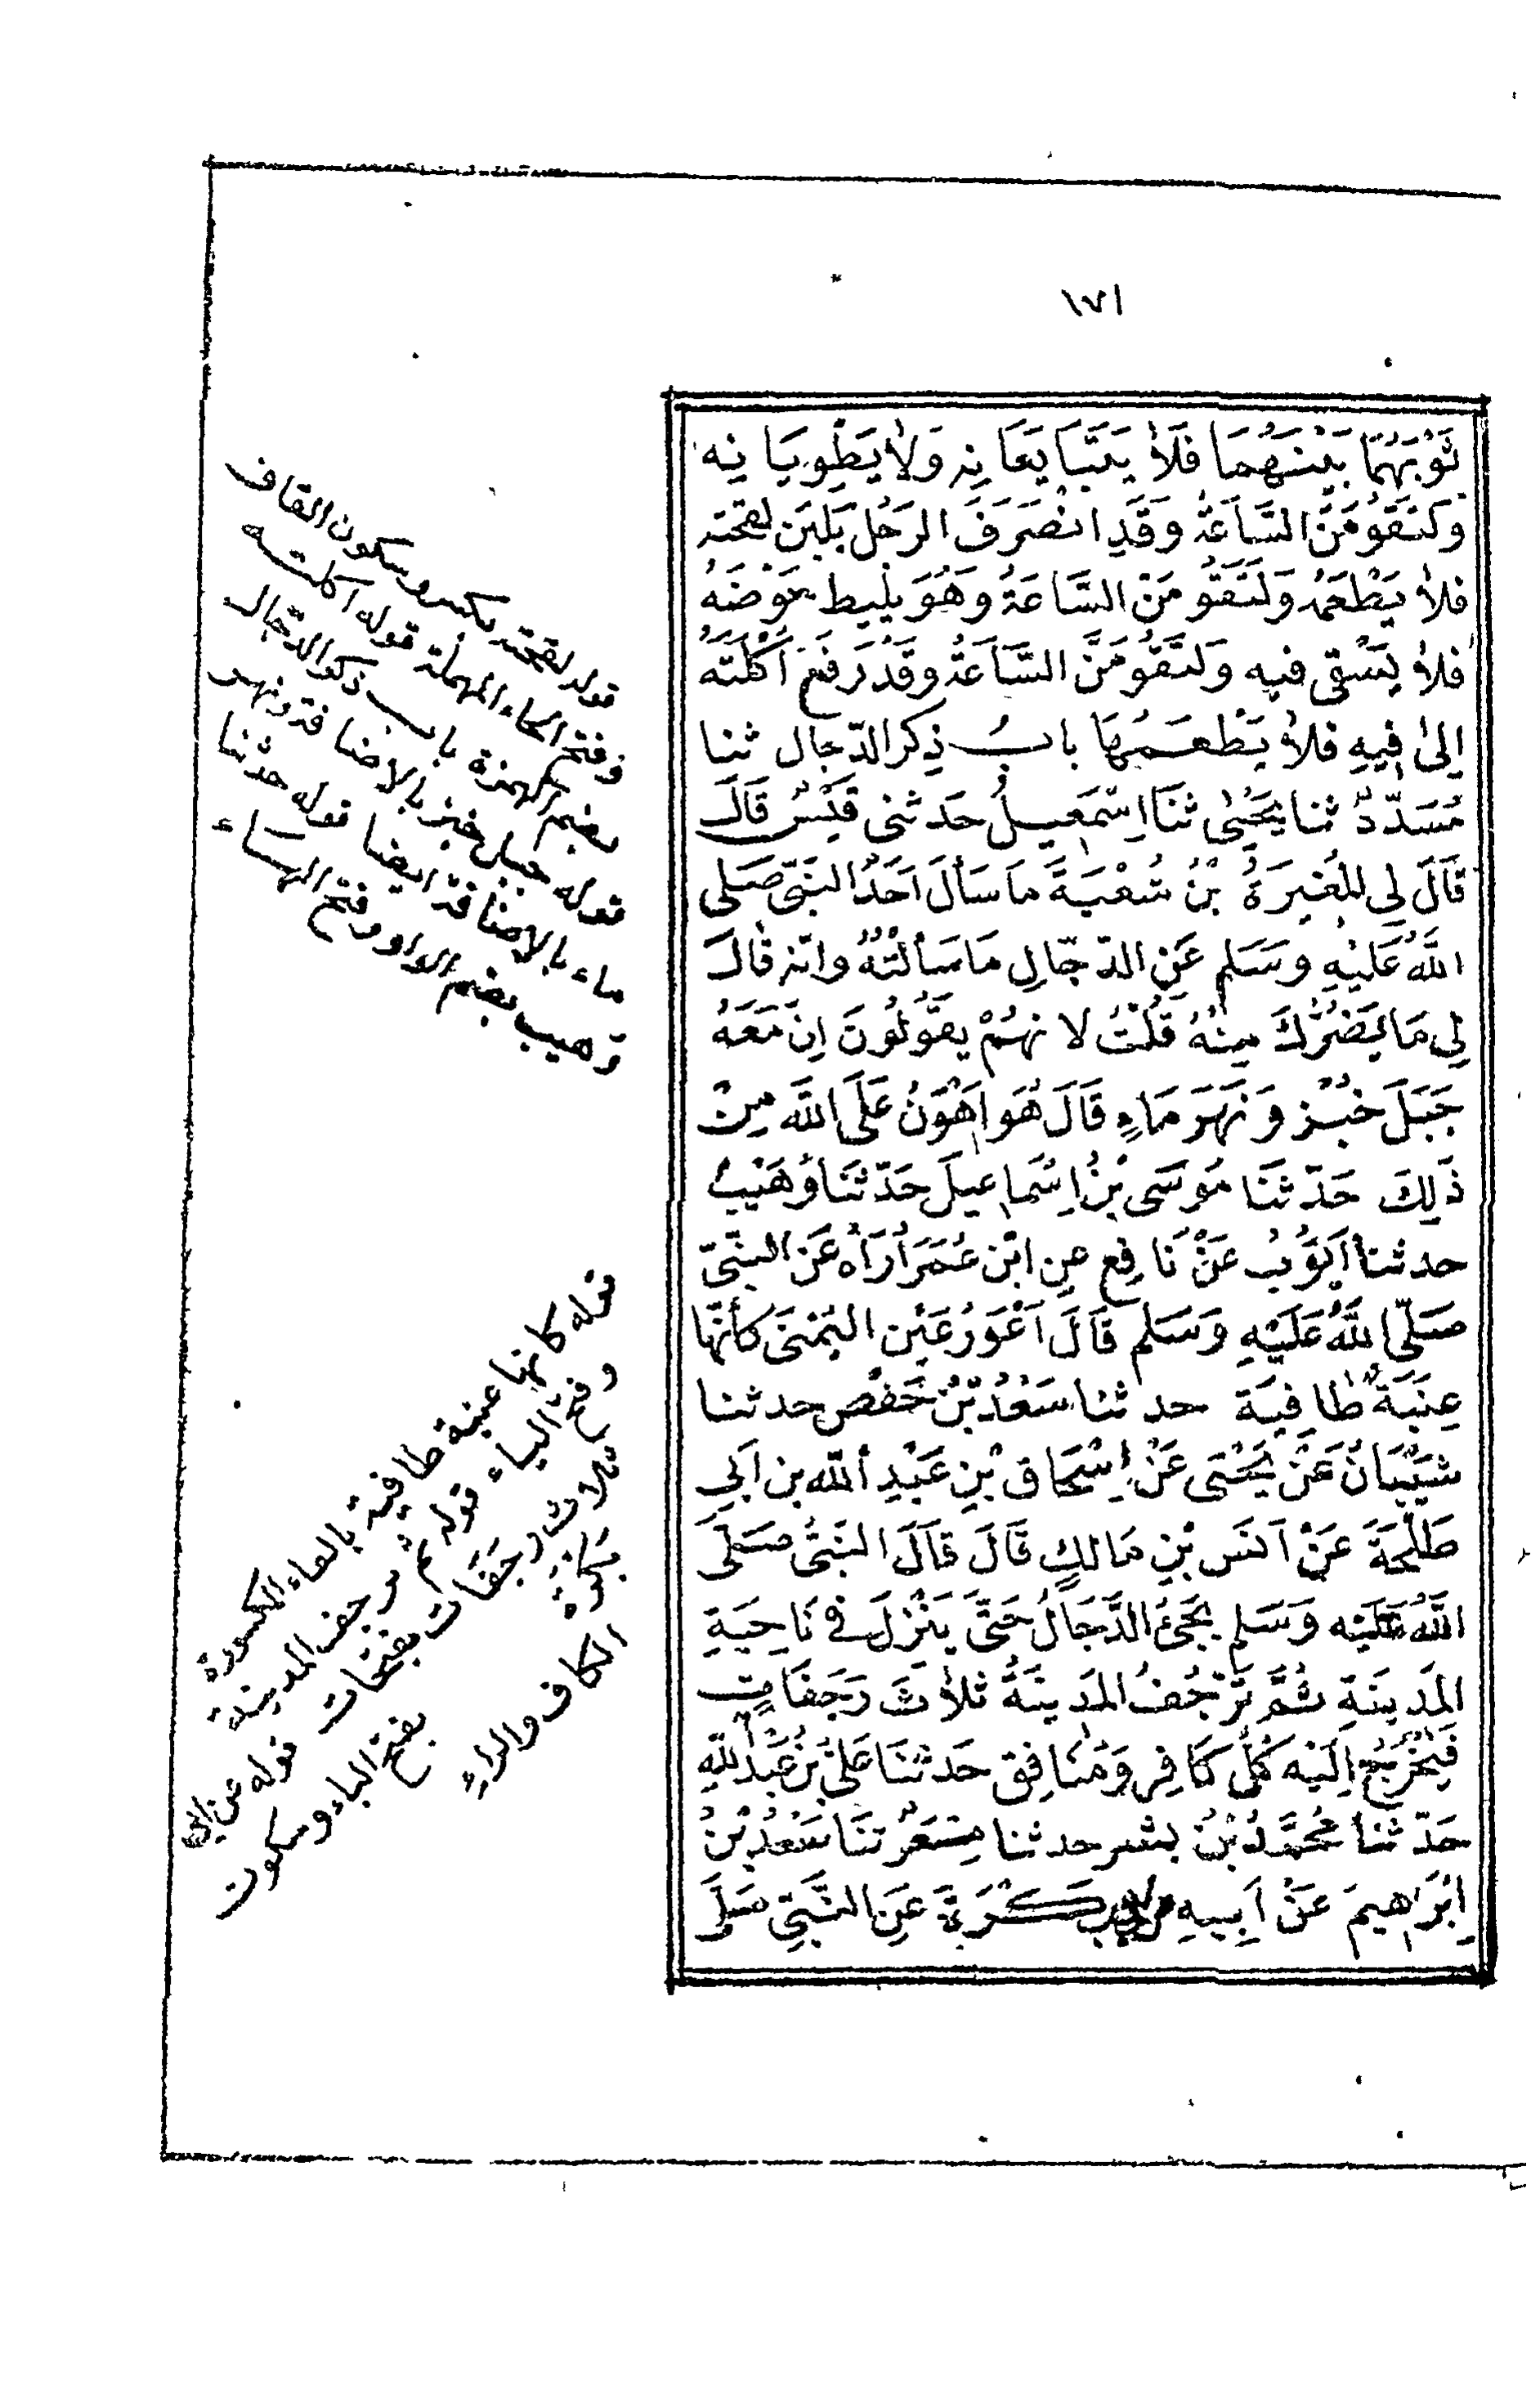 ١٧١
ثَوْبَهُمَا بَيْنَهُمَا فَلَا يَتَبَايَعَانِهِ وَلَا يَطْوِيَانِهِ
وَلَتَقُومَنَّ السَّاعَةُ وَقَدِ انْصَرَفَ الرَجُلُ بِلَبَنِ لِقْحَتِهِ
فلَا يَطْعَمُهُ وَلَتَقُومَنَّ السَّاعَةُ وَهُوَ يَلِيط حَوْضَهُ
فلَا يَسْقِي فيه وَلَتَقُومَنَّ السَّاعَةُ وَقَدْ رَفَعَ أُكْلَتَهُ
اِلىٰ فِيهِ فلَا يَطْعَمُهَا بابُ ذِكر الدّجال ثنا
مُسَدَّدٌ ثنا يَحْيٰى ثنَا اِسْمٰعِيلُ حَدثنى قَيْسٌ قَالَ
قَالَ لِي المُغِيرَةُ بْنُ شُعْبَةَ مَا سَأَلَ اَحَدٌ النَبِّىَ صَلى
اللّٰهُ عَلَيْهِ وسَلم عَنِ الدّجّالِ مَا سَأَلْتُهُ وانّه قَالَ
لِي مَا يَضُرُّكَ مِنْهُ قُلْتُ لانهُمْ يَقُولُونَ اِنَّ مَعَهُ
جَبَلَ خُبْزٍ وَنَهَرَ مَاءٍ قَالَ هُوَ اَهْوَنُ عَلَى اللّٰهِ مِنْ
ذَلِكَ حَدّثنَا مُوسَى بْنُ اِسْمَاعِيلَ حَدّثنَا وُهَيْبٌ
حدثنا أَيُّوبُ عَنْ نَافِعٍ عنِ ابْنِ عُمَرَ أُرَاهُ عَنِ النبِّىّ
صَلّى اللّٰهُ عَلَيْهِ وَسَلم قَالَ اَعْوَرُ عَيْنِ اليُمْنَى كأنّهَا
عِنَبَةٌ طَافِيَة حدثنا سَعْدُ بْنُ حَفْصٍ حدثنا
شَيْبَانُ عَنْ يَحْيَى عَنْ اِسْحَاقَ بْنِ عَبْدِ اللّٰه بن اَبِي
طَلْحَةَ عَنْ اَنَسِ بْنِ مَالِكٍ قَالَ قَالَ النَبِىُّ صَلَّى
اللّٰهُ عَلَيْهِ وَسَلم يَجِئُ الدَّجَالُ حَتَّى يَنْزِلَ فى نَاحِيَةِ
المَدِينَةِ ثُمَّ تَرْجُفُ المَدِينَةُ ثلَاثَ رَجَفَاتٍ
فَيَخْرُجُ اِلَيْهِ كُلُّ كَافِرٍ وَمُنَافِقٍ حَدثنَا عَلِىُّ بْنُ عَبْدِ اللّٰهِ
حَدّثنَا مُحَمَّدُ بْنُ بشر حدثنا مِسْعَرٌ ثنَا سَعْدُ بْنُ
اِبْرَاهِيمَ عَنْ اَبِيهِ عن ابي بَكْرَةَ عَنِ النَّبِّيِ صَلَّى
قوله لقحته بكسر وسكون القاف
وفتح الحاء المهملة قوله اكلته
بضم الهمزة باب ذكر الدّجال
قوله جبل خبز بالاضافة ونهر
ماء بالاضافة ايضا قوله حدثنا
وهيب بضم الواو وفتح الهاء
قوله كانها عنبة طافية بالفاء المكسورة
وفتح الياء قوله ثم ترجف المدينة
ثلاث رجفات بفتحات قوله عن ابي
بكرة بفتح الباء وسكون
الكاف والراء